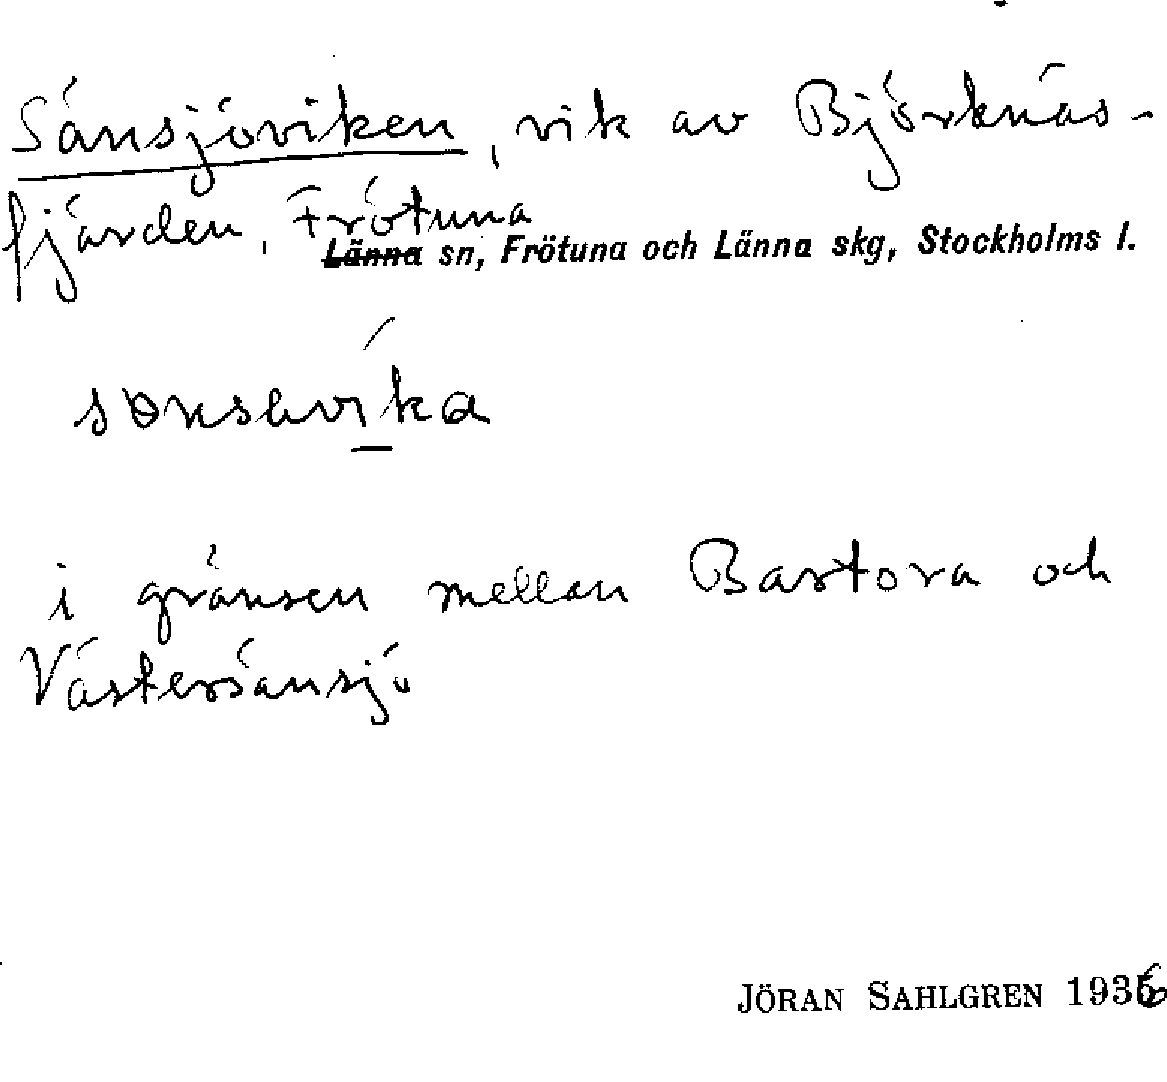 Sånsjöviken, vik av Björknäs-
fjärden, Frötuna
Länna sn, Frötuna och Länna skg, Stockholms l.
i gränsen mellan Bastora och
Västersånsjö
JÖRAN SAHLGREN 1936